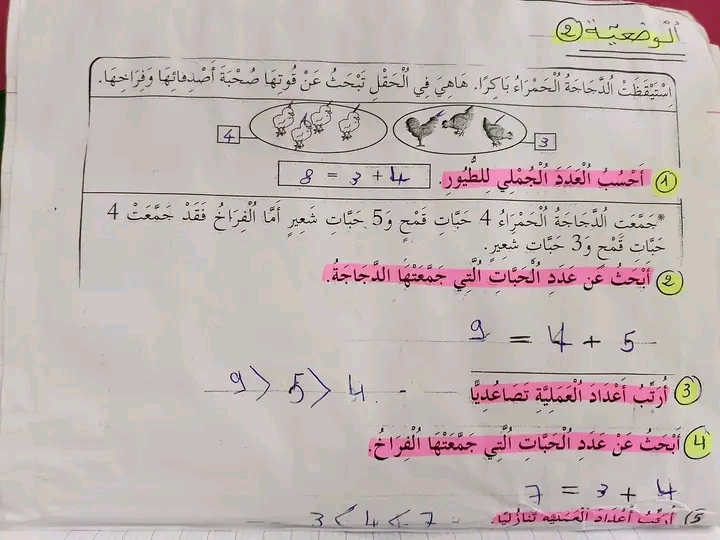 الوضعية ②
اِسْتَيْقَظَتْ الدَّجَاجَةُ الْحَمْرَاءُ بَاكِرًا. هَاهِيَ فِي الْحَقْلِ تَبْحَثُ عَنْ قُوتِهَا صُحْبَةَ أَصْدِقَائِهَا وَفِرَاخِهَا.
3 4
① أَحْسُبُ الْعَدَدَ الْجُمْلِي لِلطُّيُورِ. 8 = 3 + 4
*جَمَّعَتِ الدَّجَاجَةُ الْحَمْرَاءُ 4 حَبَّاتِ قَمْحٍ وَ5 حَبَّاتِ شَعِيرٍ أَمَّا الْفِرَاخُ فَقَدْ جَمَّعَتْ 4
حَبَّاتِ قَمْحٍ وَ3 حَبَّاتِ شَعِيرٍ.
② أَبْحَثُ عَنْ عَدَدِ الْحَبَّاتِ الَّتِي جَمَّعَتْهَا الدَّجَاجَةُ.
9 = 4 + 5
③ أُرَتِّبُ أَعْدَادَ الْعَمَلِيَّةِ تَصَاعُدِيًّا - 9 > 5 > 4
④ أَبْحَثُ عَنْ عَدَدِ الْحَبَّاتِ الَّتِي جَمَّعَتْهَا الْفِرَاخُ.
7 = 3 + 4
5) أُرَتِّبُ أَعْدَادَ الْعَمَلِيَّةِ تَنَازُلِيًّا. - 3 < 4 < 7